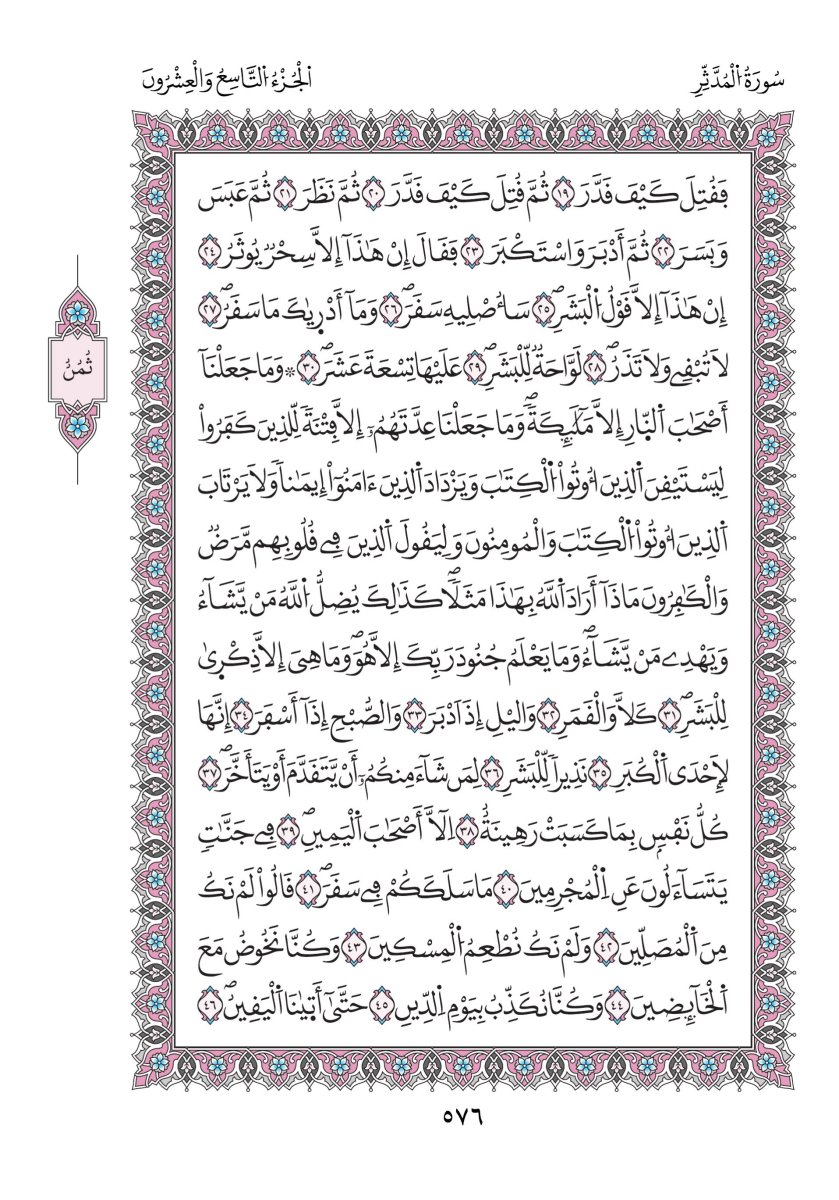 سُورَةُ اُ۬لْمُدَّثِّرِ
اُ۬لْجُزْءُ اُ۬لتَّاسِعُ وَالْعِشْرُونَ
فَقُتِلَ كَيْفَ قَدَّرَ ١٩ ثُمَّ قُتِلَ كَيْفَ قَدَّرَ ٢٠ ثُمَّ نَظَرَ ٢١ ثُمَّ عَبَسَ
وَبَسَرَ ٢٢ ثُمَّ أَدْبَرَ وَاسْتَكْبَرَ ٢٣ فَقَالَ إِنْ هَٰذَآ إِلَّا سِحْرٞ يُوثَرُ ٢٤
إِنْ هَٰذَآ إِلَّا قَوْلُ اُ۬لْبَشَرِۖ ٢٥ سَأُصْلِيهِ سَقَرَۖ ٢٦ وَمَآ أَدْر۪يٰكَ مَا سَقَرُۖ ٢٧
لَا تُبْقِے وَلَا تَذَرُۖ ٢٨ لَوَّاحَةٞ لِّلْبَشَرِۖ ٢٩ عَلَيْهَا تِسْعَةَ عَشَرَۖ ٣٠ ۞ وَمَا جَعَلْنَآ
ثُمُنُ
أَصْحَٰبَ اَ۬لنّ۪ارِ إِلَّا مَلَٰٓئِكَةٗۖ وَمَا جَعَلْنَا عِدَّتَهُمُۥٓ إِلَّا فِتْنَةٗ لِّلذِينَ كَفَرُواْ
لِيَسْتَيْقِنَ اَ۬لذِينَ أُوتُواْ اُ۬لْكِتَٰبَ وَيَزْدَادَ اَ۬لذِينَ ءَامَنُوٓاْ إِيمَٰناٗ وَلَا يَرْتَابَ
اَ۬لذِينَ أُوتُواْ اُ۬لْكِتَٰبَ وَالْمُومِنُونَ وَلِيَقُولَ اَ۬لذِينَ فِے قُلُوبِهِم مَّرَضٞ
وَالْكَٰفِرُونَ مَاذَآ أَرَادَ اَ۬للَّهُ بِهَٰذَا مَثَلاٗۖ كَذَٰلِكَ يُضِلُّ اُ۬للَّهُ مَنْ يَّشَآءُ
وَيَهْدِے مَنْ يَّشَآءُۖ وَمَا يَعْلَمُ جُنُودَ رَبِّكَ إِلَّا هُوَۖ وَمَا هِيَ إِلَّا ذِكْر۪يٰ
لِلْبَشَرِۖ ٣١ كَلَّا وَالْقَمَرِ ٣٢ وَاليْلِ إِذَ اَدْبَرَ ٣٣ وَالصُّبْحِ إِذَآ أَسْفَرَ ٣٤ إِنَّهَا
لَإِحْدَى اَ۬لْكُبَرِ ٣٥ نَذِيراٗ لِّلْبَشَرِ ٣٦ لِمَن شَآءَ مِنكُمُۥٓ أَنْ يَّتَقَدَّمَ أَوْ يَتَأَخَّرَۖ ٣٧
كُلُّ نَفْسِۢ بِمَا كَسَبَتْ رَهِينَةٌ ٣٨ اِلَّآ أَصْحَٰبَ اَ۬لْيَمِينِۖ ٣٩ فِے جَنَّٰتٖ
يَتَسَآءَلُونَ عَنِ اِ۬لْمُجْرِمِينَ ٤٠ مَا سَلَكَكُمْ فِے سَقَرَۖ ٤١ قَالُواْ لَمْ نَكُ
مِنَ اَ۬لْمُصَلِّينَ ٤٢ وَلَمْ نَكُ نُطْعِمُ اُ۬لْمِسْكِينَ ٤٣ وَكُنَّا نَخُوضُ مَعَ
اَ۬لْخَآئِضِينَ ٤٤ وَكُنَّا نُكَذِّبُ بِيَوْمِ اِ۬لدِّينِ ٤٥ حَتَّىٰٓ أَت۪يٰنَا اَ۬لْيَقِينُۖ ٤٦
٥٧٦